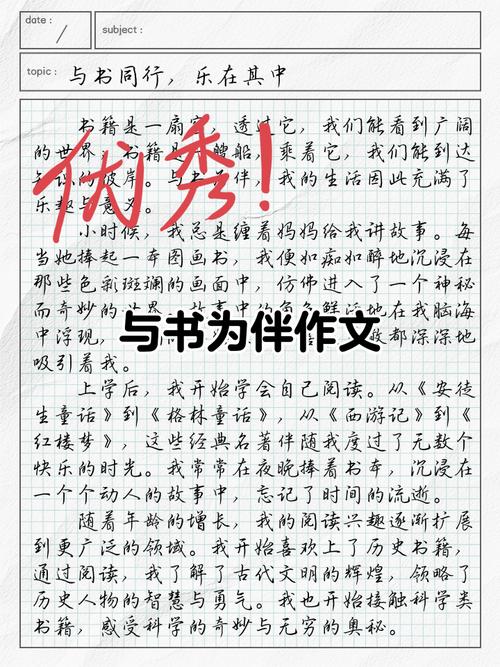 date：
subject：
topic：与书同行，乐在其中
优秀！
书籍是一扇窗，透过它，我们能看到广阔
的世界。书籍是一艘船，乘着它，我们能到达
知识的彼岸。与书为伴，我的生活因此充满了
乐趣与意义。
小时候，我总是缠着妈妈给我讲故事。每
当她捧起一本图画书，我便如痴如醉地沉浸在
那些色彩斑斓的画面中，仿佛进入了一个神秘
而奇妙的世界。故事中的角色鲜活地在我脑海
中浮现，
与书为伴作文
都深深地
吸引着我。
上学后，我开始学会自己阅读。从《安徒
生童话》到《格林童话》，从《西游记》到《
红楼梦》，这些经典名著伴随我度过了无数个
快乐的时光。我常常在夜晚捧着书本，沉浸在
一个个动人的故事中，忘记了时间的流逝。
随着年龄的增长，我的阅读兴趣逐渐扩展
到更广泛的领域。我开始喜欢上了历史书籍，
通过阅读，我了解了古代文明的辉煌，领略了
历史人物的智慧与勇气。我也开始接触科学类
书籍，感受科学的奇妙与无穷的奥秘。